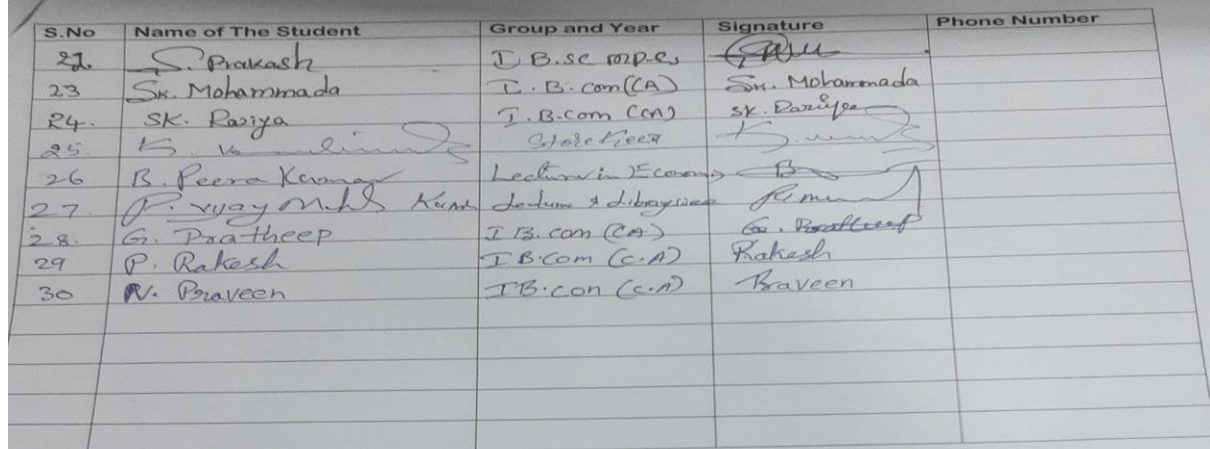 S.No Name of The Student Group and Year Signature Phone Number
S. Prakash I B.sc m.p.c.s
23 Sk. Mohammada I. B. com (CA) Sk. Mohammada
24. SK. Raziya I. B.com (CA) SK. Raziya
25. K. Store Keeper
26 B. Peera Kumar Lecture in Economics B
27 P. Vijay Kumar Lecture &
28. G. Pratheep I B. com (CA) G. Pratheep
29 P. Rakesh I B.Com (C.A) Rakesh
30 N. Praveen I B.con (C.A) Praveen